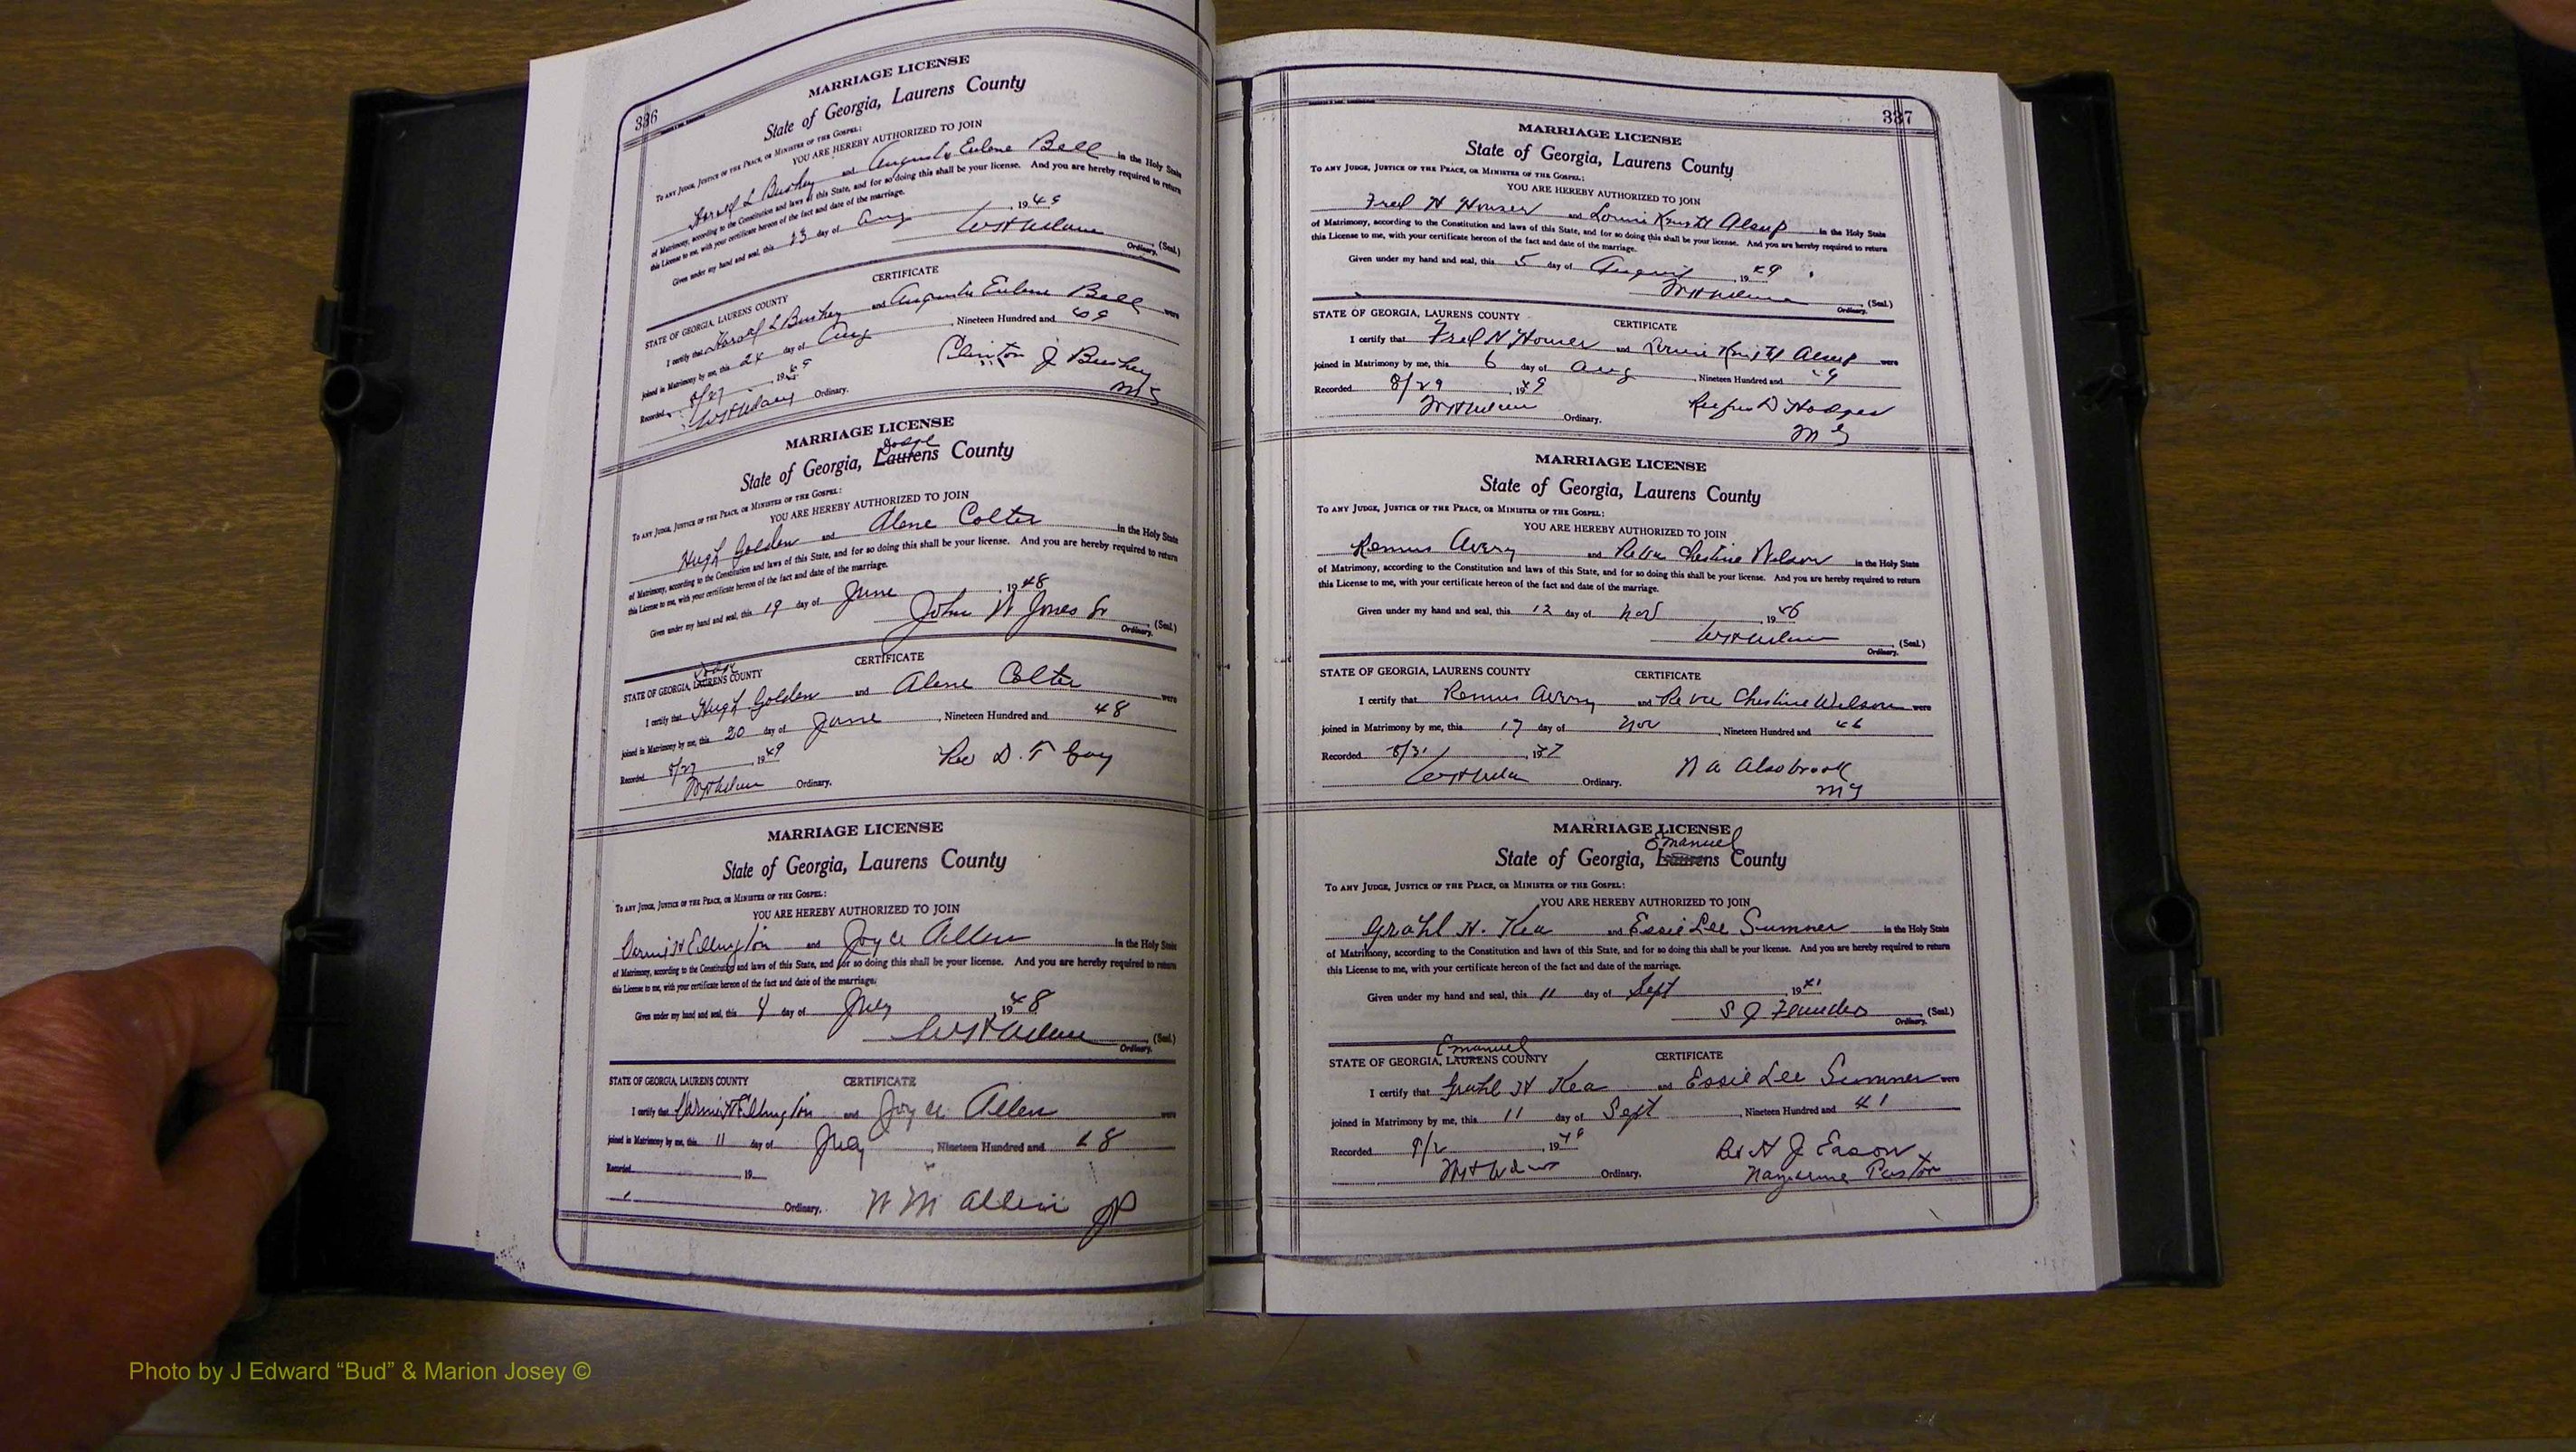 336
MARRIAGE LICENSE
State of Georgia, Laurens County
TO ANY JUDGE, JUSTICE OF THE PEACE, OR MINISTER OF THE GOSPEL:
YOU ARE HEREBY AUTHORIZED TO JOIN
Harold L Bushey and Augusta Eulene Bell in the Holy State
of Matrimony, according to the Constitution and laws of this State, and for so doing this shall be your license. And you are hereby required to return
this License to me, with your certificate hereon of the fact and date of the marriage.
Given under my hand and seal, this 23 day of Aug, 1949
(Seal.)
Ordinary.
CERTIFICATE
STATE OF GEORGIA, LAURENS COUNTY
I certify that Harold L Bushey and Augusta Eulene Bell were
joined in Matrimony by me, this 24 day of Aug, Nineteen Hundred and 49
Recorded 8/27, 1949
Clinton J Bushey
Ordinary.
MG
MARRIAGE LICENSE
Dodge
State of Georgia, Laurens County
TO ANY JUDGE, JUSTICE OF THE PEACE, OR MINISTER OF THE GOSPEL:
YOU ARE HEREBY AUTHORIZED TO JOIN
Hugh Golden and Alene Colter in the Holy State
of Matrimony, according to the Constitution and laws of this State, and for so doing this shall be your license. And you are hereby required to return
this License to me, with your certificate hereon of the fact and date of the marriage.
Given under my hand and seal, this 19 day of June, 1948
John W Jones Sr (Seal.)
Ordinary.
CERTIFICATE
Dodge
STATE OF GEORGIA, LAURENS COUNTY
I certify that Hugh Golden and Alene Colter were
joined in Matrimony by me, this 20 day of June, Nineteen Hundred and 48
Recorded 8/27, 1949
Rev D. T Gay
Ordinary.
MARRIAGE LICENSE
State of Georgia, Laurens County
TO ANY JUDGE, JUSTICE OF THE PEACE, OR MINISTER OF THE GOSPEL:
YOU ARE HEREBY AUTHORIZED TO JOIN
Ellington and Joyce Allen in the Holy State
of Matrimony, according to the Constitution and laws of this State, and for so doing this shall be your license. And you are hereby required to return
this License to me, with your certificate hereon of the fact and date of the marriage.
Given under my hand and seal, this day of July, 1948
(Seal.)
Ordinary.
STATE OF GEORGIA, LAURENS COUNTY CERTIFICATE
I certify that Ellington and Joyce Allen were
joined in Matrimony by me, this 11 day of July, Nineteen Hundred and 48
Recorded, 19
Ordinary. W M Allen JP
337
MARRIAGE LICENSE
State of Georgia, Laurens County
TO ANY JUDGE, JUSTICE OF THE PEACE, OR MINISTER OF THE GOSPEL:
YOU ARE HEREBY AUTHORIZED TO JOIN
Fred H Houser and Lonnie Knight Alsup in the Holy State
of Matrimony, according to the Constitution and laws of this State, and for so doing this shall be your license. And you are hereby required to return
this License to me, with your certificate hereon of the fact and date of the marriage.
Given under my hand and seal, this 5 day of August, 1949
(Seal.)
Ordinary.
STATE OF GEORGIA, LAURENS COUNTY CERTIFICATE
I certify that Fred H Houser and Lonnie Knight Alsup were
joined in Matrimony by me, this 6 day of Aug, Nineteen Hundred and 49
Recorded 8/29, 1949
Rufus D Hodges
Ordinary.
MG
MARRIAGE LICENSE
State of Georgia, Laurens County
TO ANY JUDGE, JUSTICE OF THE PEACE, OR MINISTER OF THE GOSPEL:
YOU ARE HEREBY AUTHORIZED TO JOIN
Remus Avery and Reva Chestine Wilson in the Holy State
of Matrimony, according to the Constitution and laws of this State, and for so doing this shall be your license. And you are hereby required to return
this License to me, with your certificate hereon of the fact and date of the marriage.
Given under my hand and seal, this 12 day of Nov, 1946
(Seal.)
Ordinary.
STATE OF GEORGIA, LAURENS COUNTY CERTIFICATE
I certify that Remus Avery and Reva Chestine Wilson were
joined in Matrimony by me, this 17 day of Nov, Nineteen Hundred and 46
Recorded 8/31
Ordinary. N A Alsobrook
MG
MARRIAGE LICENSE
Emanuel
State of Georgia, Laurens County
TO ANY JUDGE, JUSTICE OF THE PEACE, OR MINISTER OF THE GOSPEL:
YOU ARE HEREBY AUTHORIZED TO JOIN
Grahl H. Kea and Essie Lee Sumner in the Holy State
of Matrimony, according to the Constitution and laws of this State, and for so doing this shall be your license. And you are hereby required to return
this License to me, with your certificate hereon of the fact and date of the marriage.
Given under my hand and seal, this 11 day of Sept 1941
S J Flanders (Seal.)
Ordinary.
Emanuel
STATE OF GEORGIA, LAURENS COUNTY CERTIFICATE
I certify that Grahl H Kea and Essie Lee Sumner were
joined in Matrimony by me, this 11 day of Sept, Nineteen Hundred and 41
Recorded 9/2, 19
H J Eason
Ordinary. Nazarene Pastor
Photo by J Edward “Bud” & Marion Josey ©